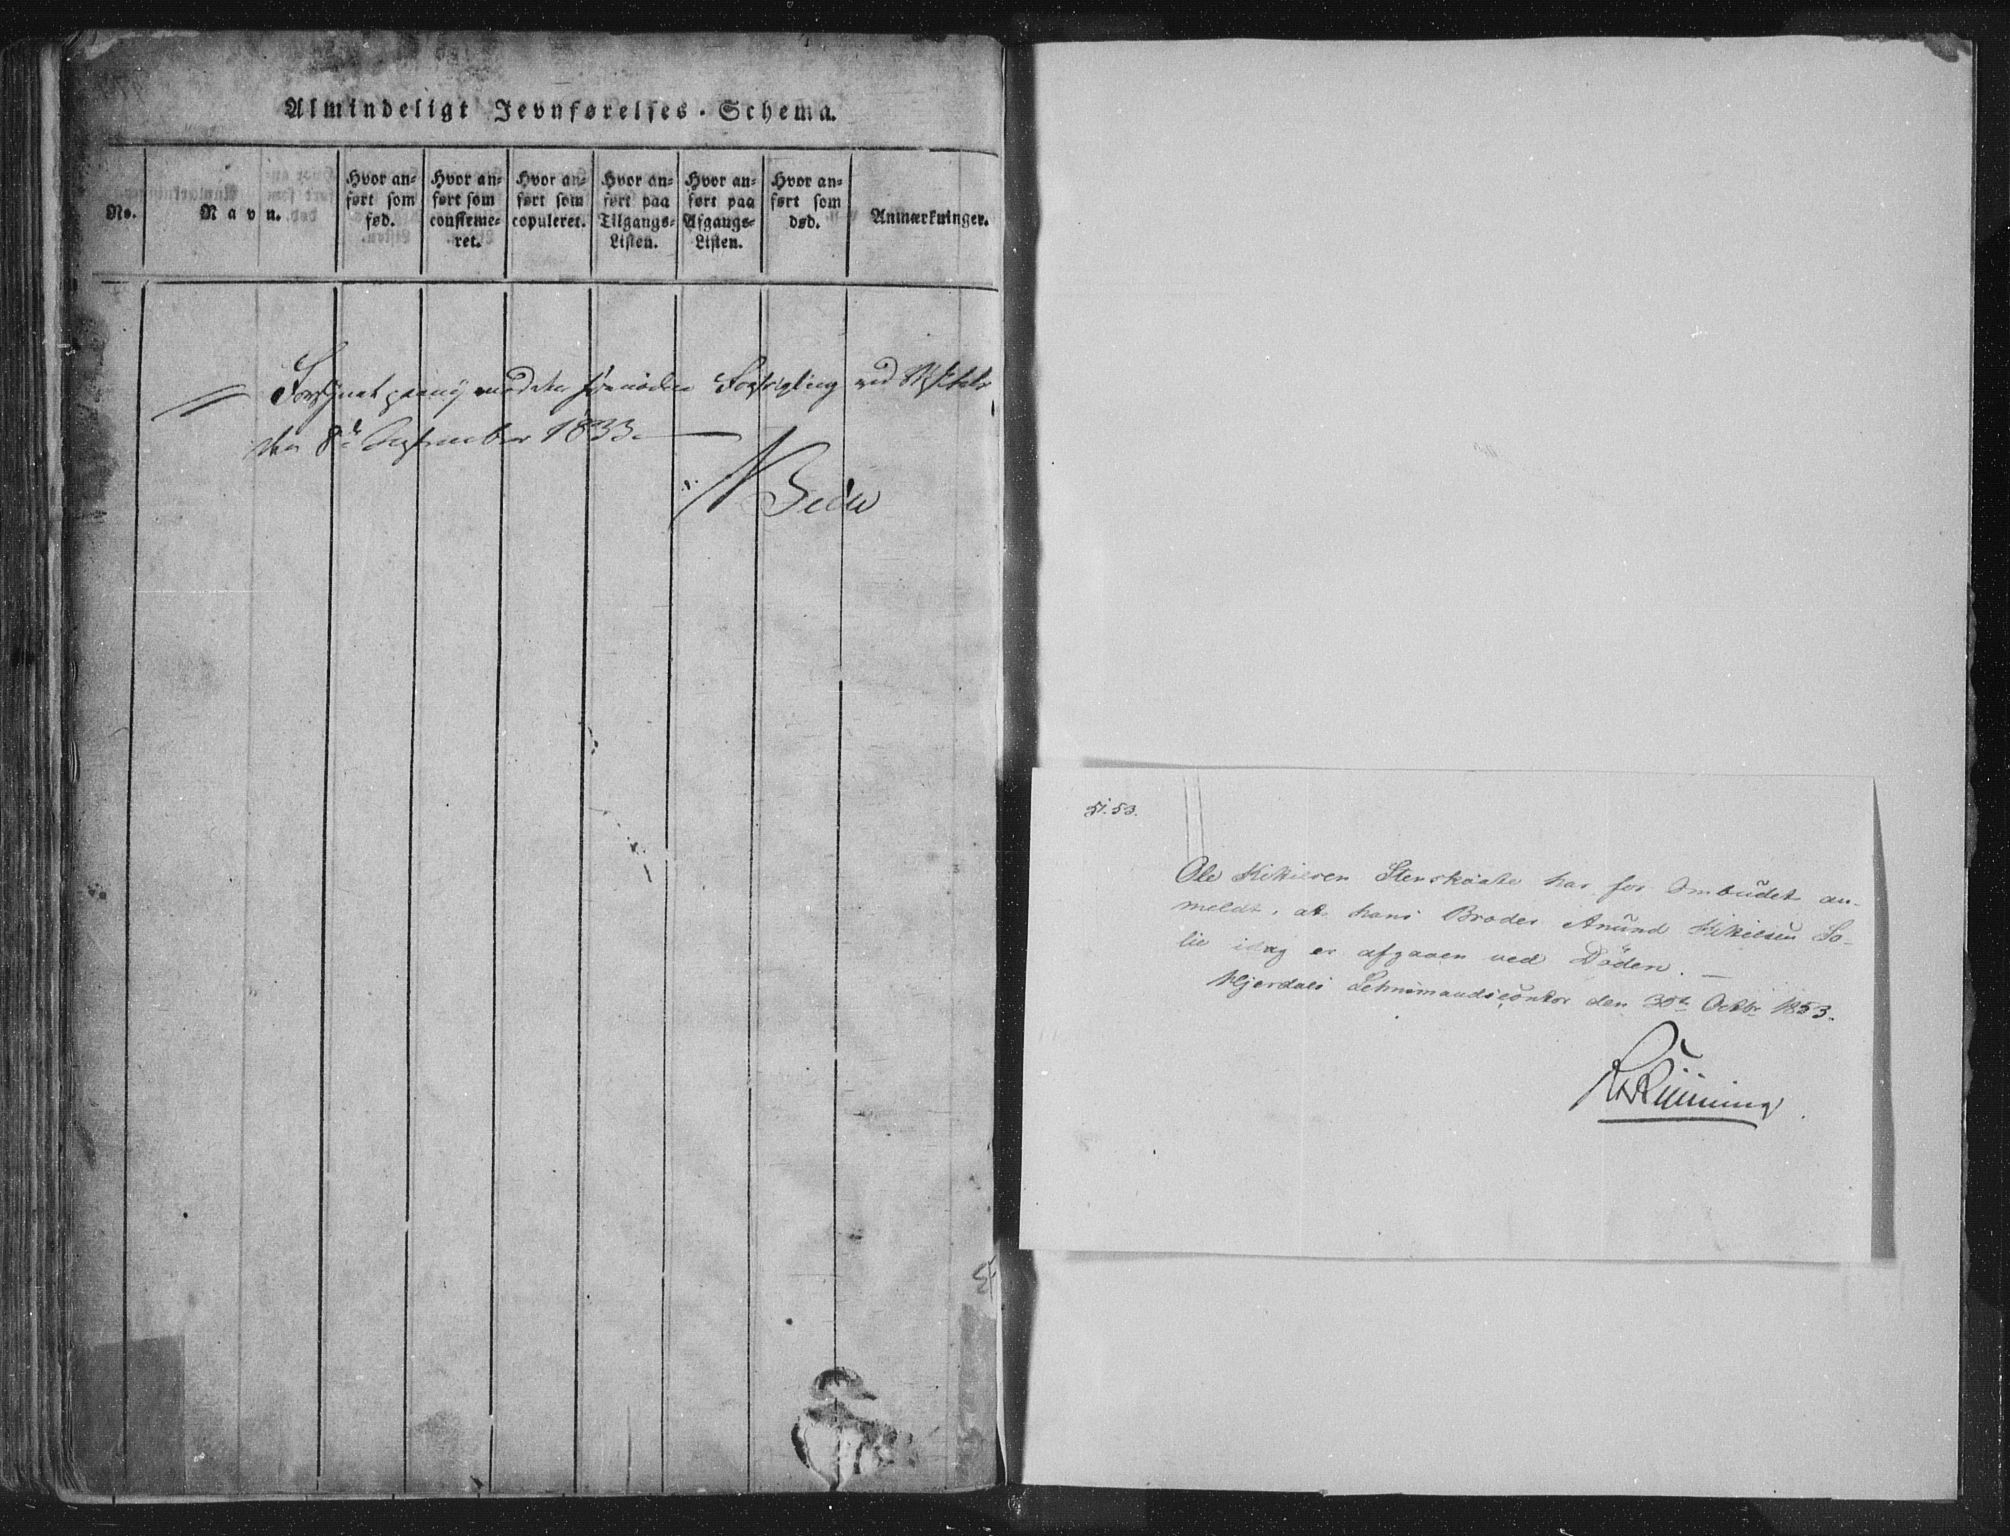 Almindeligt Jevnførelses-Schema.
No.
Navn.
Hvor an-
ført som
fød.
Hvor an-
ført som
confirme-
ret.
Hvor an-
ført som
copuleret.
Hvor an-
ført paa
Tilgangs-
Listen.
Hvor an-
ført paa
Afgangs-
Listen.
Hvor an-
ført som
død.
Anmærkninger.
Forsynet paany med den fornødne ved
den 8de September 1833.
N
53.
Ole Kittilsen Stenskaate har for Ombudet an-
meldt, at hans Broder Anund Kittilsen So-
lie idag er afgaaen ved Döden. —
Hjerdals Lehnsmandscontor den 30te Octbr 1853.